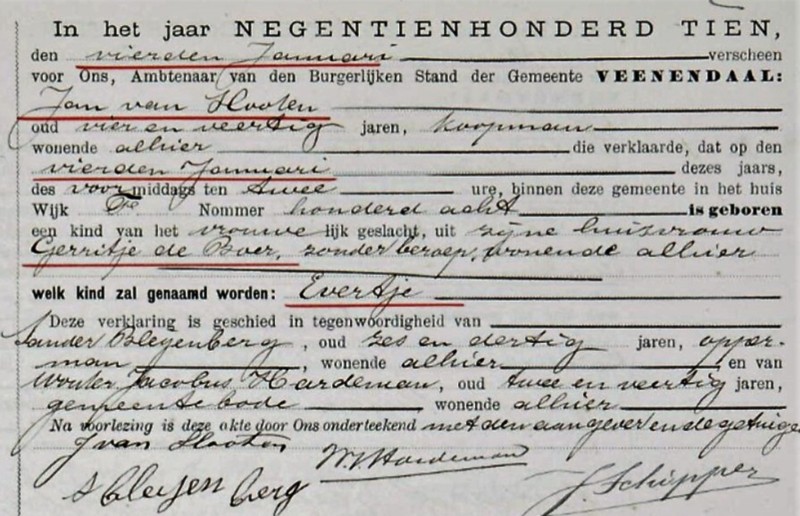 In het jaar NEGENTIENHONDERD TIEN,
den vierden Januari verscheen
voor Ons, Ambtenaar van den Burgerlijken Stand der Gemeente VEENENDAAL:
Jan van Hooten
oud vier en veertig jaren, koopman
wonende alhier die verklaarde, dat op den
vierden Januari dezes jaars,
des voormiddags ten twee ure, binnen deze gemeente in het huis
Wijk Nommer honderd acht is geboren
een kind van het vrouwelijk geslacht, uit zijne huisvrouw
Gerritje de Boer, zonder beroep, wonende alhier
welk kind zal genaamd worden: Evertje
Deze verklaring is geschied in tegenwoordigheid van
Sander Bleijenberg, oud zes en dertig jaren, opper-
man, wonende alhier en van
Wouter Jacobus Hardeman, oud twee en veertig jaren,
gemeentebode wonende alhier
Na voorlezing is deze akte door Ons onderteekend met den aangever en de getuige
J van Hooten
WJ Hardeman
S Bleijenberg
J. Schipper